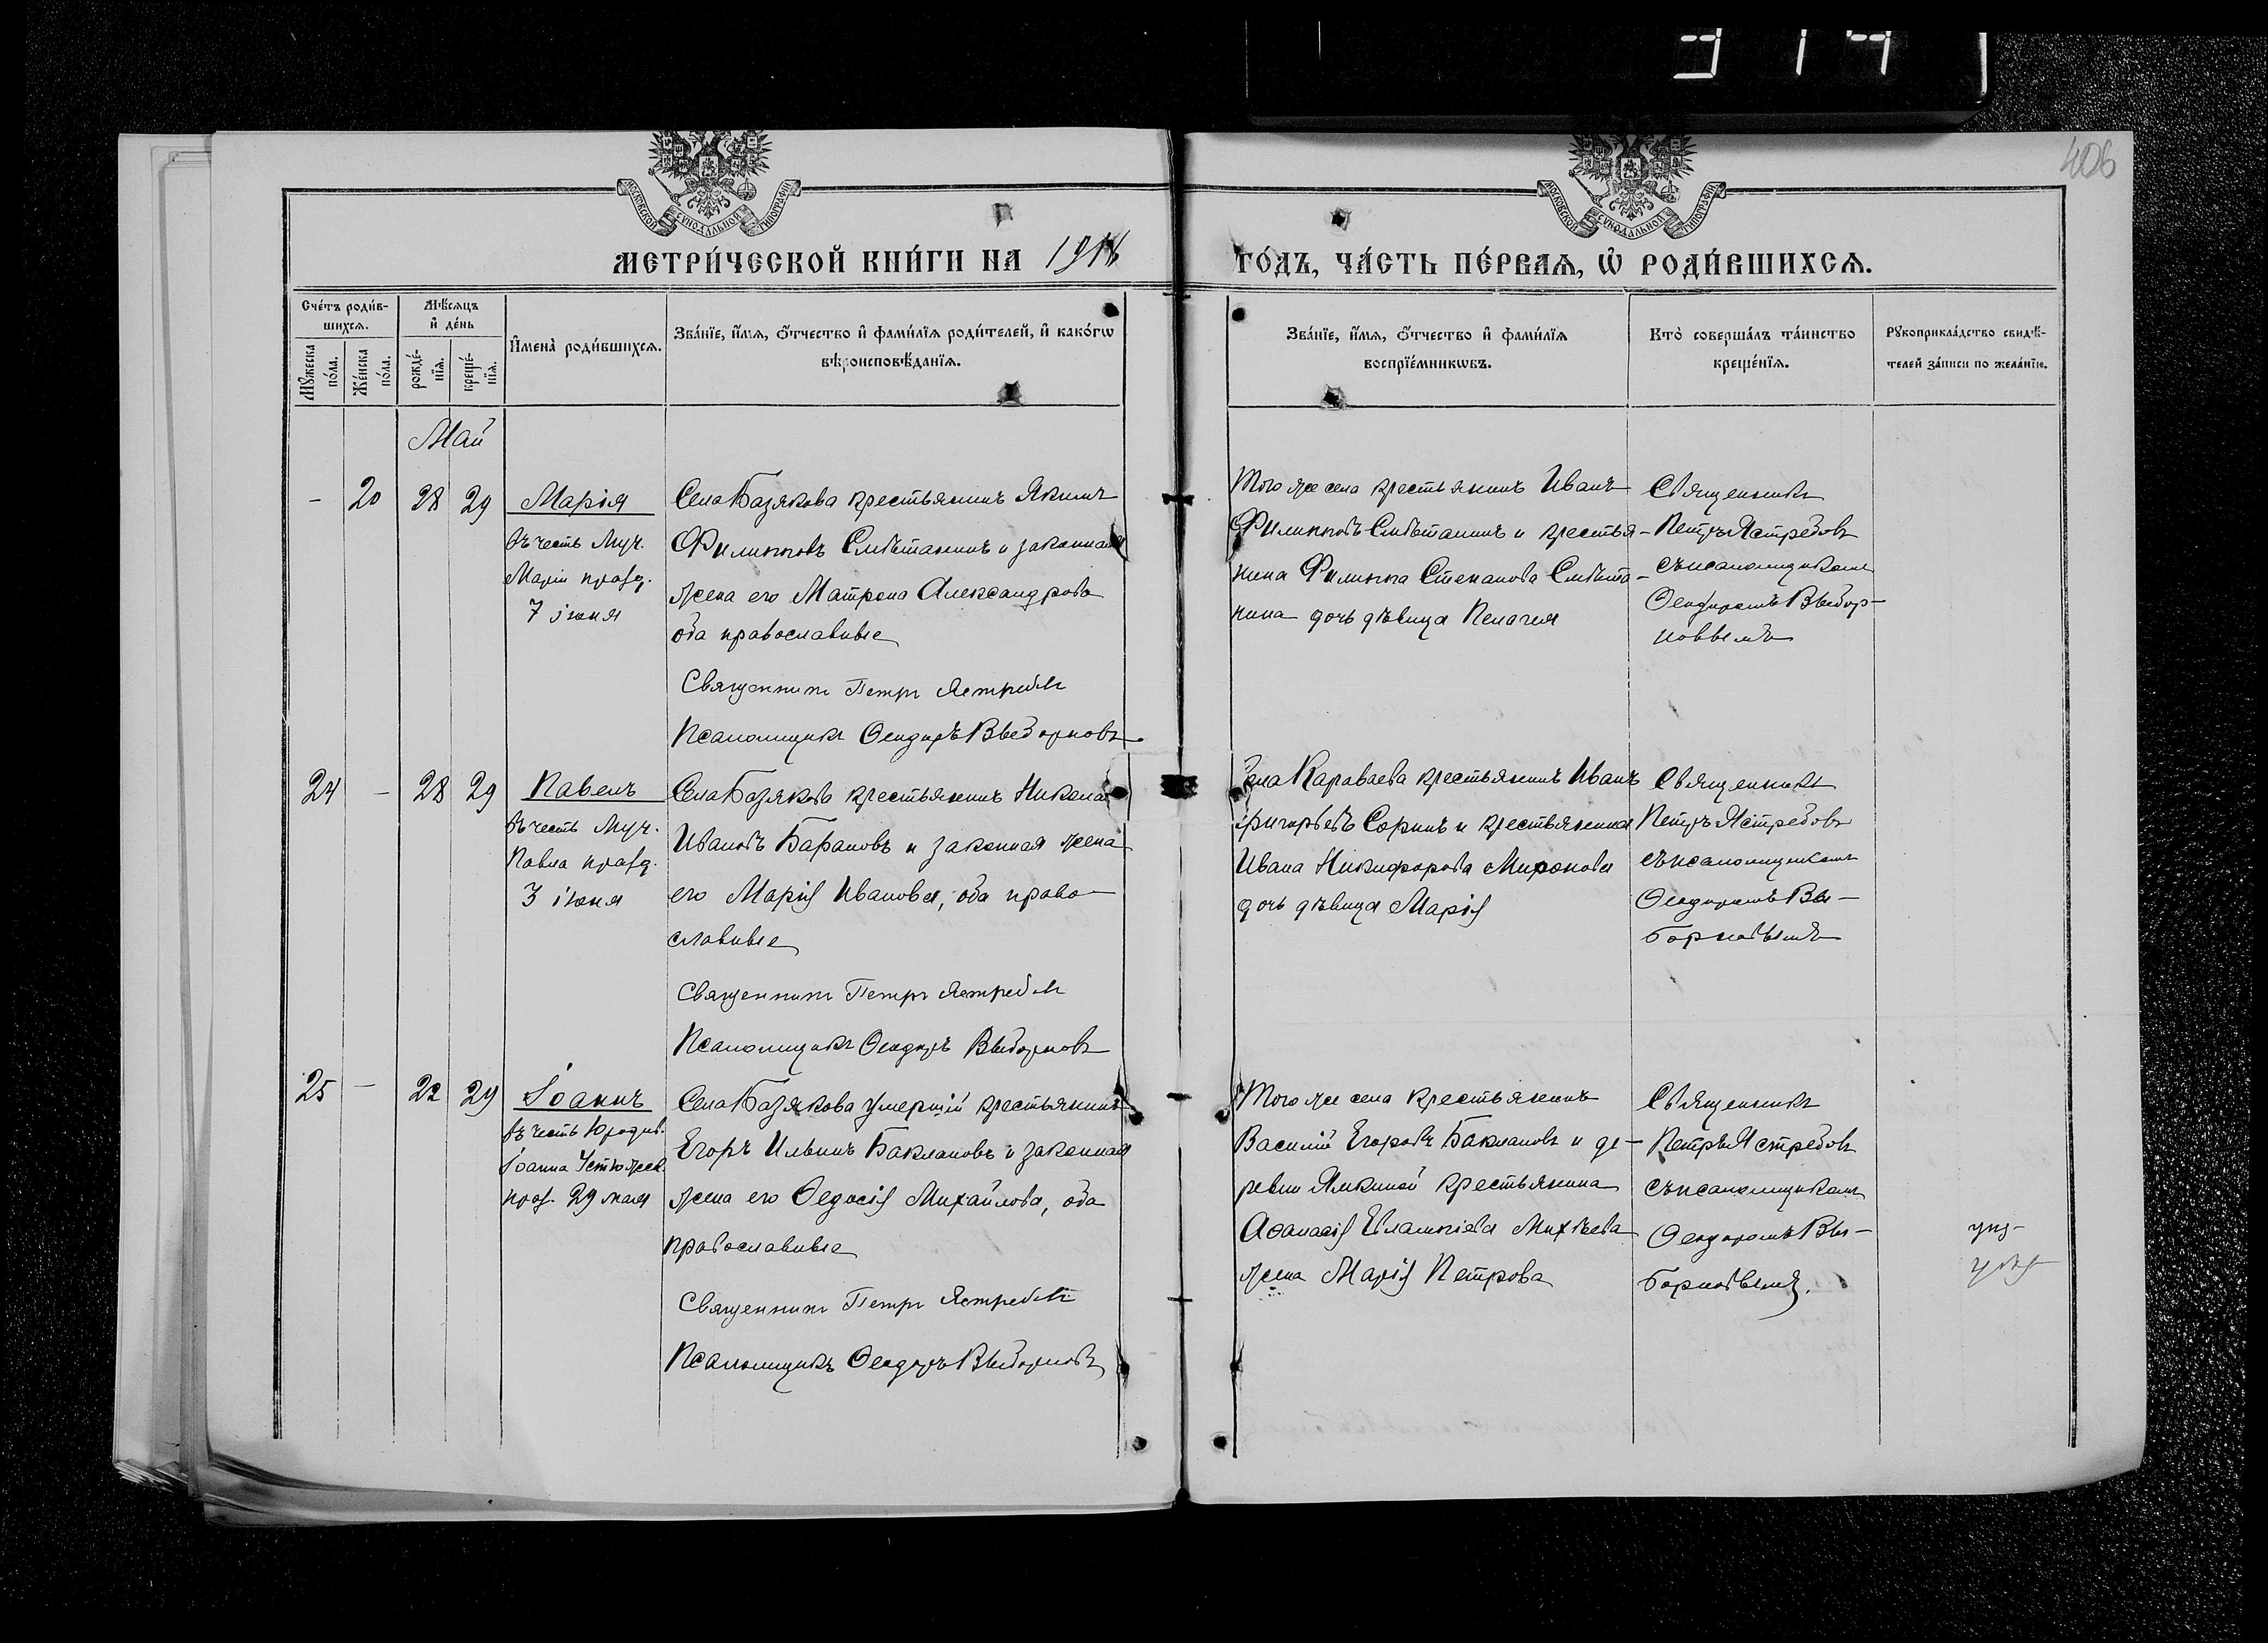 914
406
МОСКОВСКОЙ СѴНОДАЛЬНОЙ ТИПОГРАФІИ
МОСКОВСКОЙ СѴНОДАЛЬНОЙ ТИПОГРАФІИ
МЕТРИ́ЧЕСКОЙ КНИ́ГИ НА 191
ГО́ДЪ, ЧА́СТЬ ПЕ́РВАѦ, Ѡ҆ РОДИ́ВШИХСѦ.
Сче́тъ роди́в-
шихсѧ.
Мѣ́сѧцъ
и҆ де́нь
Мꙋ́жеска
по́ла.
Же́нска
по́ла.
рожде́-
нїѧ.
креще́-
нїѧ.
И҆мена̀ роди́вшихсѧ.
Зва́нїе, и҆́мѧ, ѻ҆́тчество и҆ фами́лїѧ роди́телей, и҆ како́гѡ
вѣроисповѣ́данїѧ.
Зва́нїе, и҆́мѧ, ѻ҆́тчество и҆ фами́лїѧ
воспрїе́мникѡвъ.
Кто̀ соверша́лъ та́инство
креще́нїѧ.
Рꙋкоприкла́дство свидѣ́-
телей за́писи по жела́нїю.
Май
- 20 28 29 Марія
въ честь муч.
Маріи празд.
7 іюня
Села Базякова крестьянинъ Якимъ
Филипповъ Смѣтанинъ и законная
жена его Матрона Александрова
оба православные
Священникъ Петръ Ястребовъ
Псаломщикъ Ѳеодоръ Выборновъ
Того же села крестьянинъ Иванъ
Филипповъ Смѣтанинъ и крестья-
нина Филиппа Степанова Смѣта-
нина дочь дѣвица Пелагея
Священникъ
Петръ Ястребовъ
съ псаломщикомъ
Ѳеодоромъ Выбор-
новымъ
24 - 28 29 Павелъ
въ честь муч.
Павла празд.
3 іюня
Села Базякова крестьянинъ Николай
Ивановъ Барановъ и законная жена
его Марія Иванова, оба право-
славные
Священникъ Петръ Ястребовъ
Псаломщикъ Ѳеодоръ Выборновъ
Села Караваева крестьянинъ Иванъ
Григорьевъ Соринъ и крестьянина
Ивана Никифорова Миронова
дочь дѣвица Марія
Священникъ
Петръ Ястребовъ
съ псаломщикомъ
Ѳеодоромъ Вы-
борновымъ
25 - 22 29 Іоаннъ
въ честь Юродив.
Іоанна Устюжск.
праз. 29 мая
Села Базякова умершій крестьянинъ
Егоръ Ильинъ Баклановъ и законная
жена его Ѳедосія Михайлова, оба
православные
Священникъ Петръ Ястребовъ
Псаломщикъ Ѳеодоръ Выборновъ
Того же села крестьянинъ
Василій Егоровъ Баклановъ и де-
ревни Ямкиной крестьянина
Аѳанасія Евлампіева Михѣева
жена Марія Петрова
Священникъ
Петръ Ястребовъ
съ псаломщикомъ
Ѳеодоромъ Вы-
борновымъ.